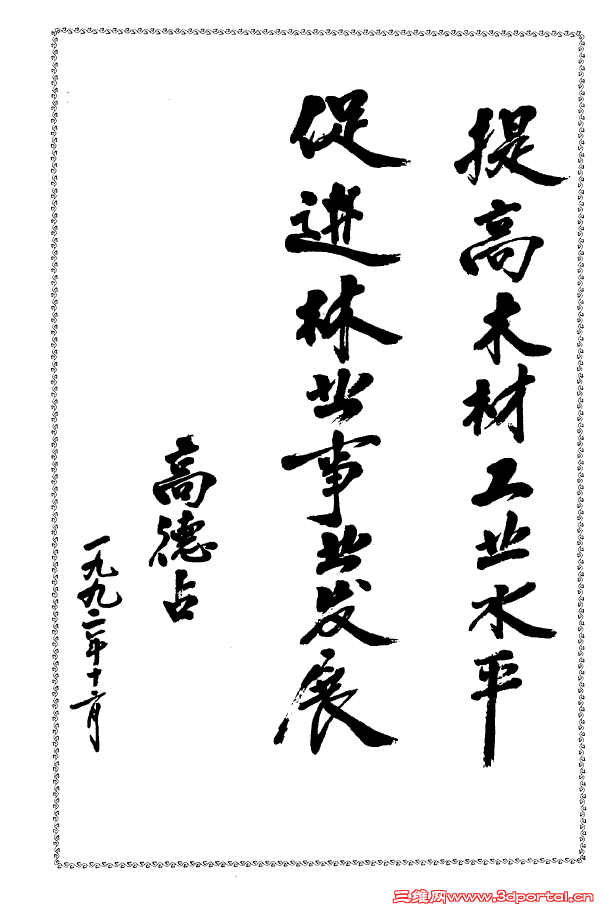 提高木材工业水平
促进林业事业发展
高德占
一九九二年十二月
三维网www.3dportal.cn